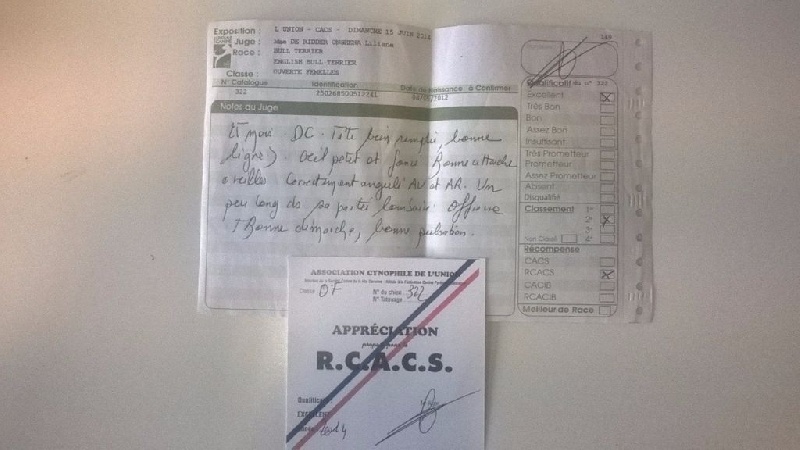 Exposition : L UNION - CACS - DIMANCHE 15 JUIN 2014
Juge : MME DE RIDDER Liliane
Race : BULL TERRIER
ENGLISH BULL TERRIER
Classe : OUVERTE FEMELLES
N° Catalogue Identification Date de naissance à Confirmer
322
Notes du Juge
DC. Tête bien remplie, bonne
ligne). Oeil petit et foncé Bonne attache
oreilles Correctement angulé AV et AR. Un
peu long de sa partie lombaire.
Bonne démarche, bonne pulsation.
Qualificatif du n° 322
Excellent X
Très Bon
Bon
Assez Bon
Insuffisant
Très Prometteur
Prometteur
Assez Prometteur
Absent
Disqualifié
Classement 1°
2° X
3°
4°
Non Classé
Récompense
CACS
RCACS X
CACIB
RCACIB
Meilleur de Race
ASSOCIATION CYNOPHILE DE L'UNION
Classe : OF N° du chien : 322
N° Tatouage :
APPRÉCIATION
R.C.A.C.S.
Qualificatif :
EXCELLENT